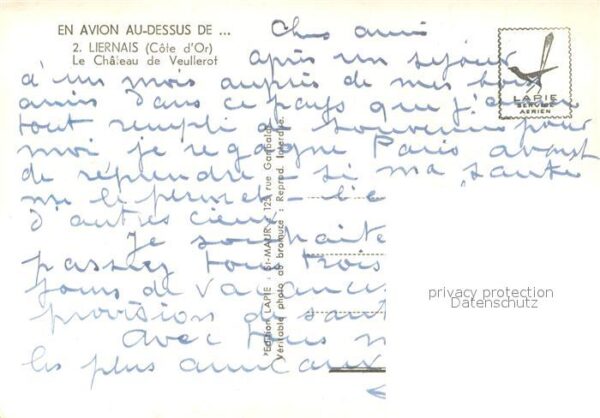 EN AVION AU-DESSUS DE ...
2. LIERNAIS (Côte d'Or)
Le Château de Veullerot
LAPIE
SERVICE
AERIEN
Chers amis
après un séjour
d'un mois auprès de mes bons
amis dans ce pays que j'aime
tout rempli de souvenirs pour
moi je regagne Paris avant
de reprendre - si ma santé
me le permet - l'e
d'autres cieux
Je souhaite
passiez tous trois
jours de vacances
provision de sant
Avec mes
les plus amicaux
*Edition LAPIE : St-MAUR, 123 rue Garibaldi.
Véritable photo au bromure : Reprod. Interdite.
privacy protection
Datenschutz